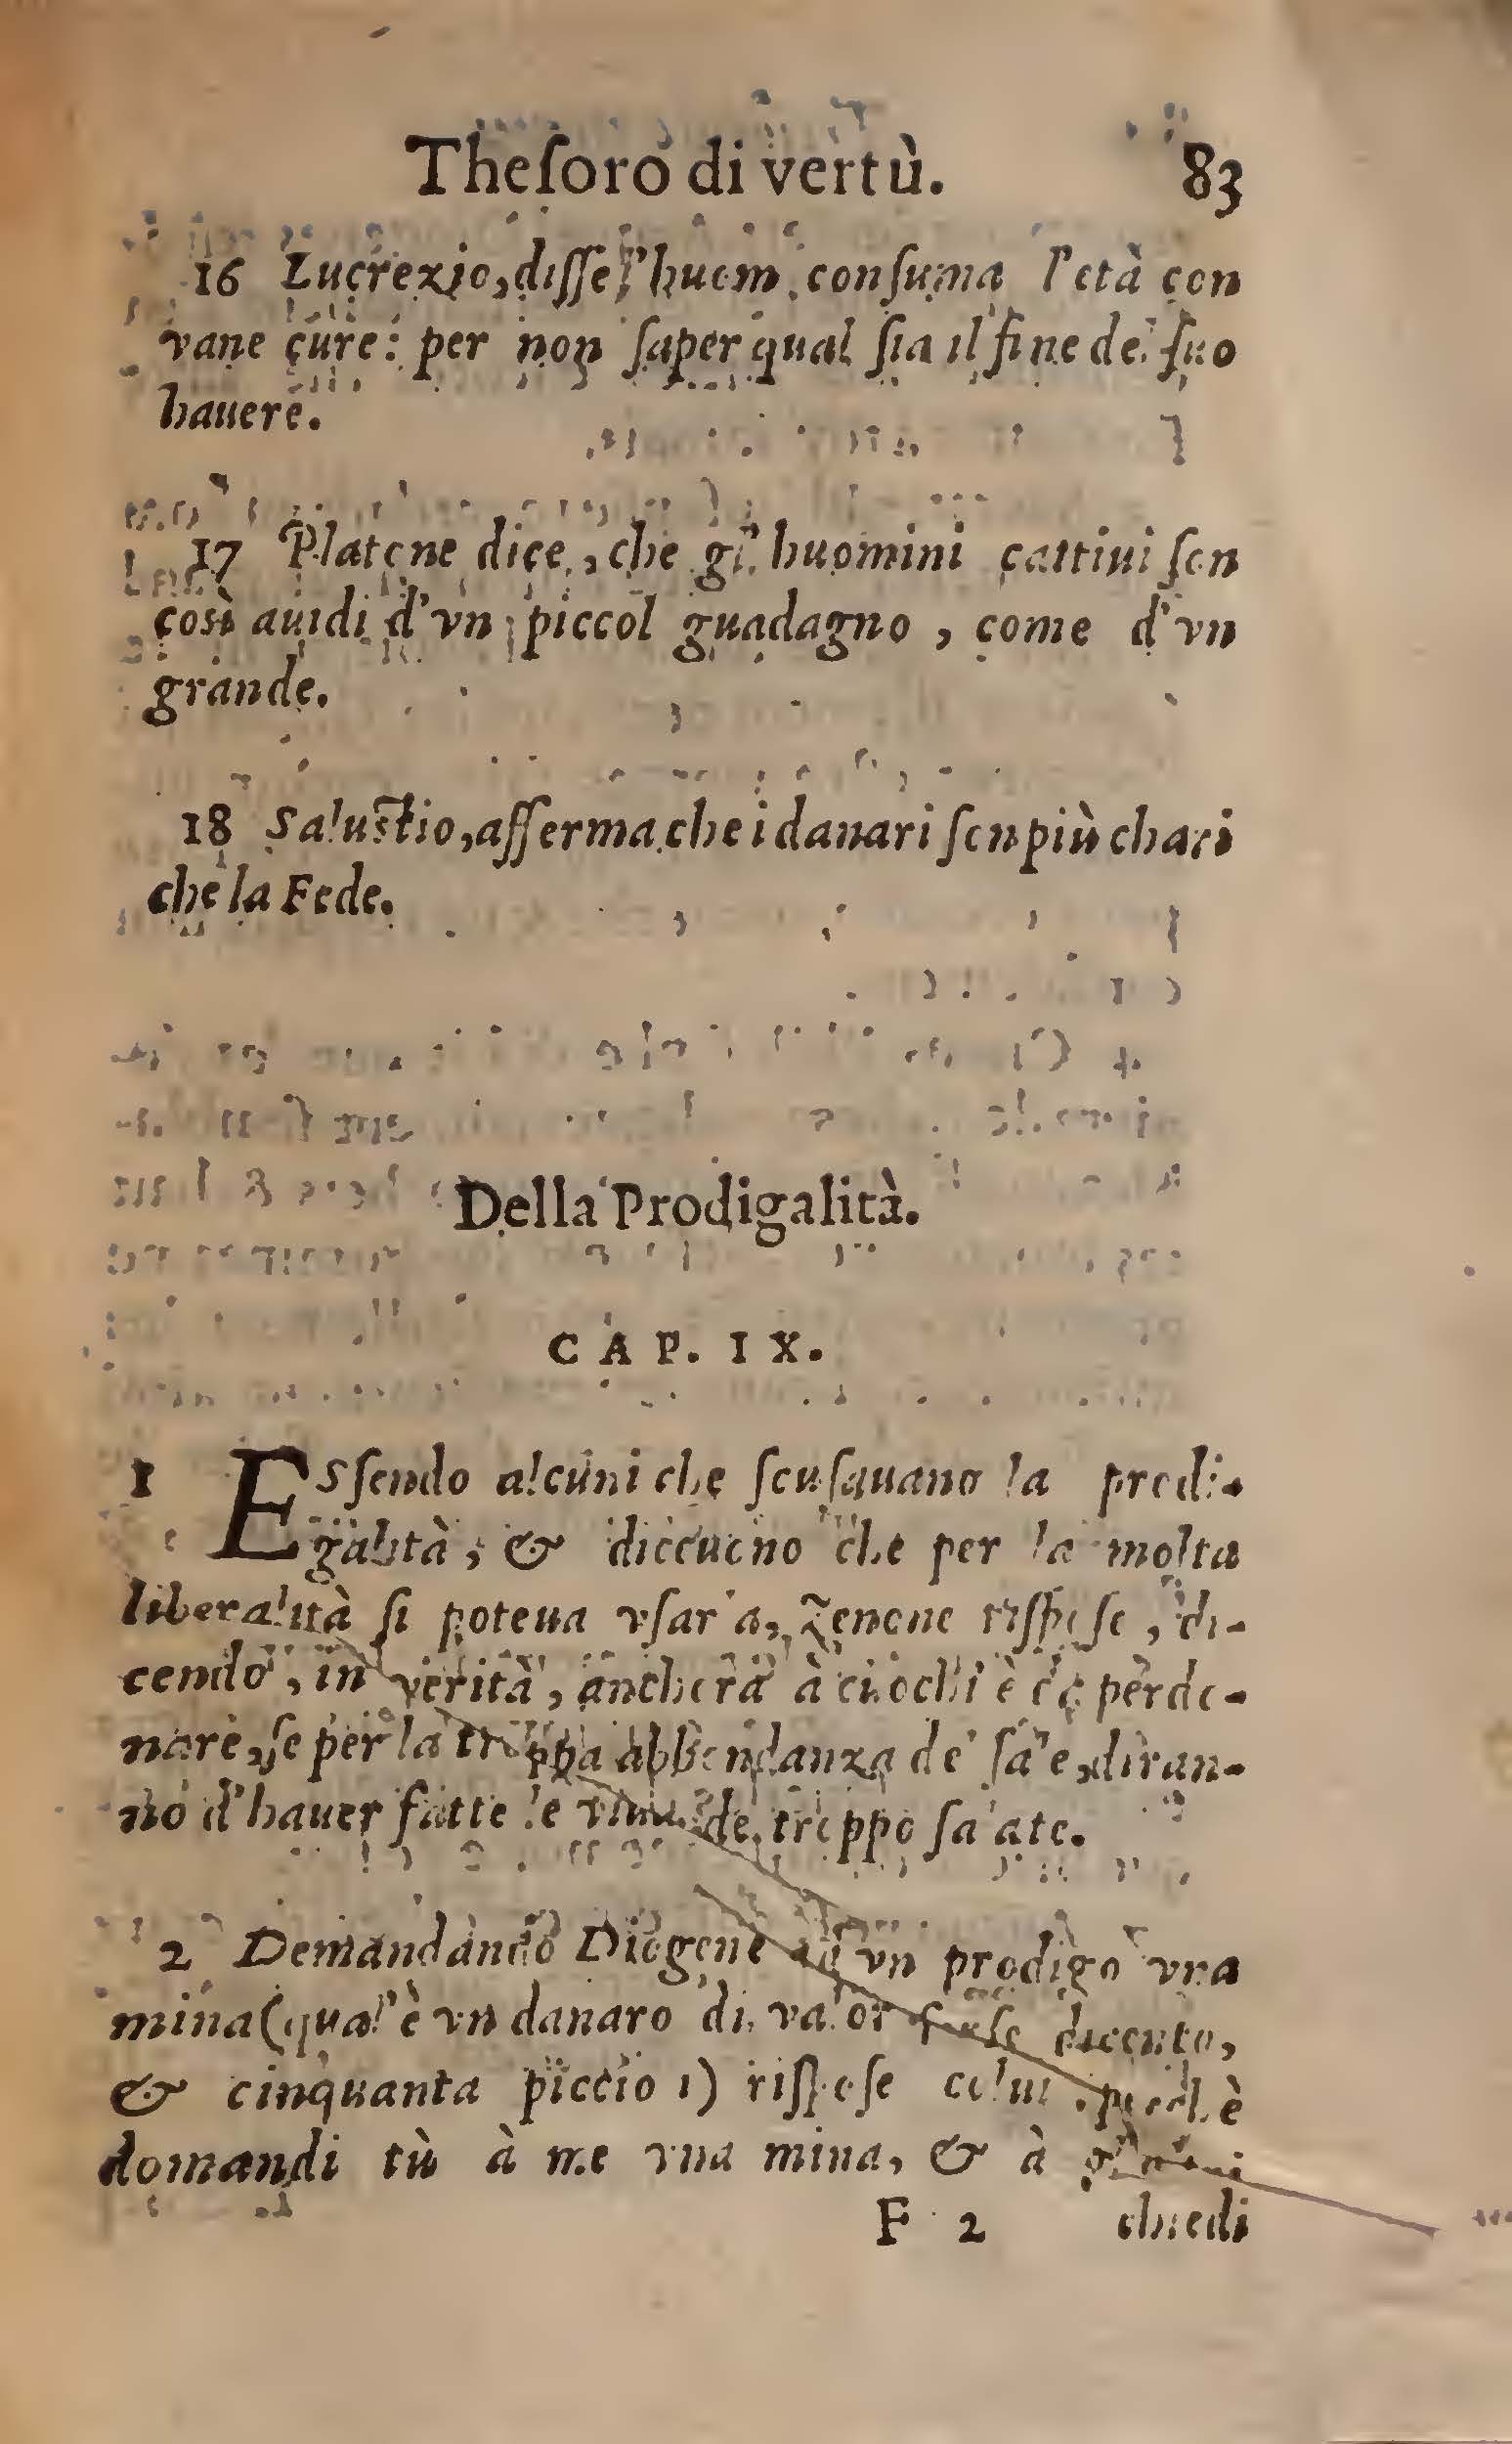 Theſoro di vertù. 83
16 Lucrezio, diſſe l'huom conſuma l'età con
vane cure: per non ſaper qual ſia il fine del ſuo
hauere.
17 Platone dice, che gl' huomini cattiui ſon
così auidi d'vn piccol guadagno, come d'vn
grande.
18 Saluſtio, afferma che i danari ſon più chari
che la Fede.
Della Prodigalità.
CAP. IX.
1 ESſendo alcuni che ſcuſauano la prodi-
galità, & diceuono che per la molta
liberalità ſi poteua vſarla, Zenone riſpoſe, di-
cendo, in verità, anchora à cuochi è da perdo-
nare, ſe per la troppa abbondanza del ſale, diran-
no d'hauer fatte le viuande troppo ſalate.
2 Demandando Diogene ad vn prodigo vna
mina (qual' è vn danaro di valor forſe ducento,
& cinquanta piccioli) riſpoſe colui perchè
domandi tù à me vna mina, & à
F 2 chiedi